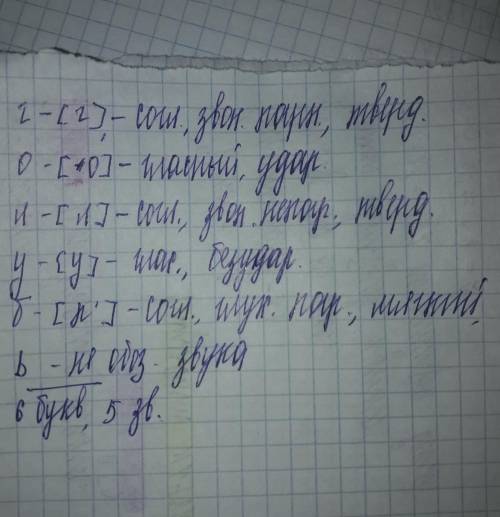 г - [г] - согл., звон. парн., тверд.
о - [о] - гласный, удар.
л - [л] - согл., звон. непар., тверд.
у - [у] - глас., безудар.
б - [п'] - согл., глух. пар., мягкий
ь - не обоз. звука
6 букв, 5 зв.